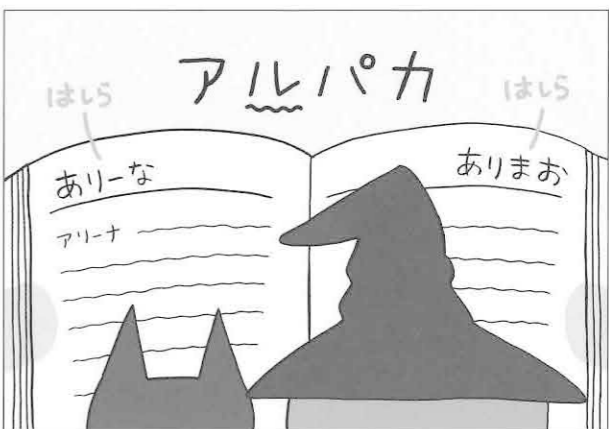 アルパカ
はしら
はしら
ありーな
ありまお
アリーナ